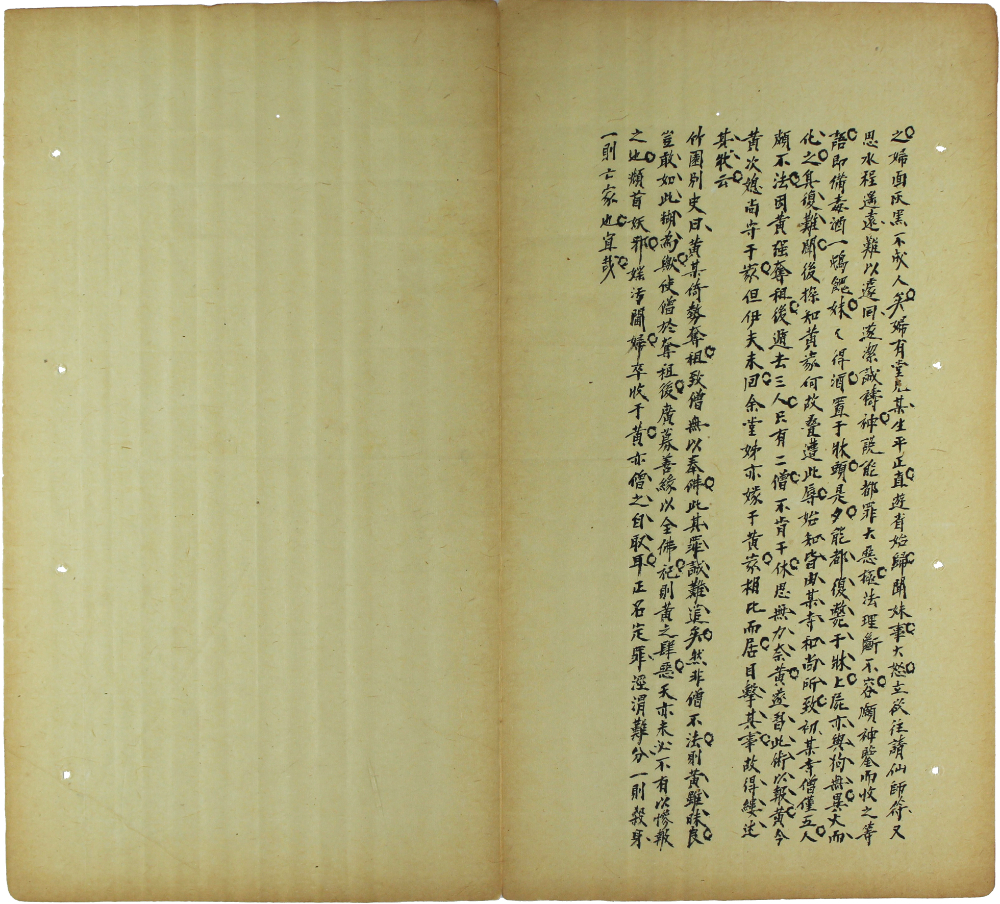 之婦面灰黑不成人矣婦有堂兄某生平正直遊省始歸聞妹事大怒立欲往請仙師符又
思水程遙遠難以遽回遂潔誠禱神說能都罪大惡極法理斷不容願神鑒而收之等
語即備毒酒一鴆餽妹〻得酒置于牀頭是夕能都復斃于牀上屍亦與狗無異火而
化之其復難聞後探知黃家何故疊遭此辱始知皆由某寺和尚所致初某寺僧僅五人
頗不法因黃强奪租後遁去三人只有二僧不肯干休思無力奈黃遂習此術以報黃今
黃次媳尚守于家但伊夫未回余堂姊亦嫁于黃家相比而居目擊其事故得縷述
其狀云
竹園別史曰黃某倚勢奪租致僧無以奉佛此其罪誠難逭矣然非僧不法則黃雖昧良
豈敢如此糊為歟使僧於奪租後廣募善緣以全佛祀則黃之肆惡天亦未必不有以慘報
之也頫首妖邪媱污閨婦卒收于黃亦僧之自取耳正名定罪涇渭難分一則殺身
一則亡家也宜哉